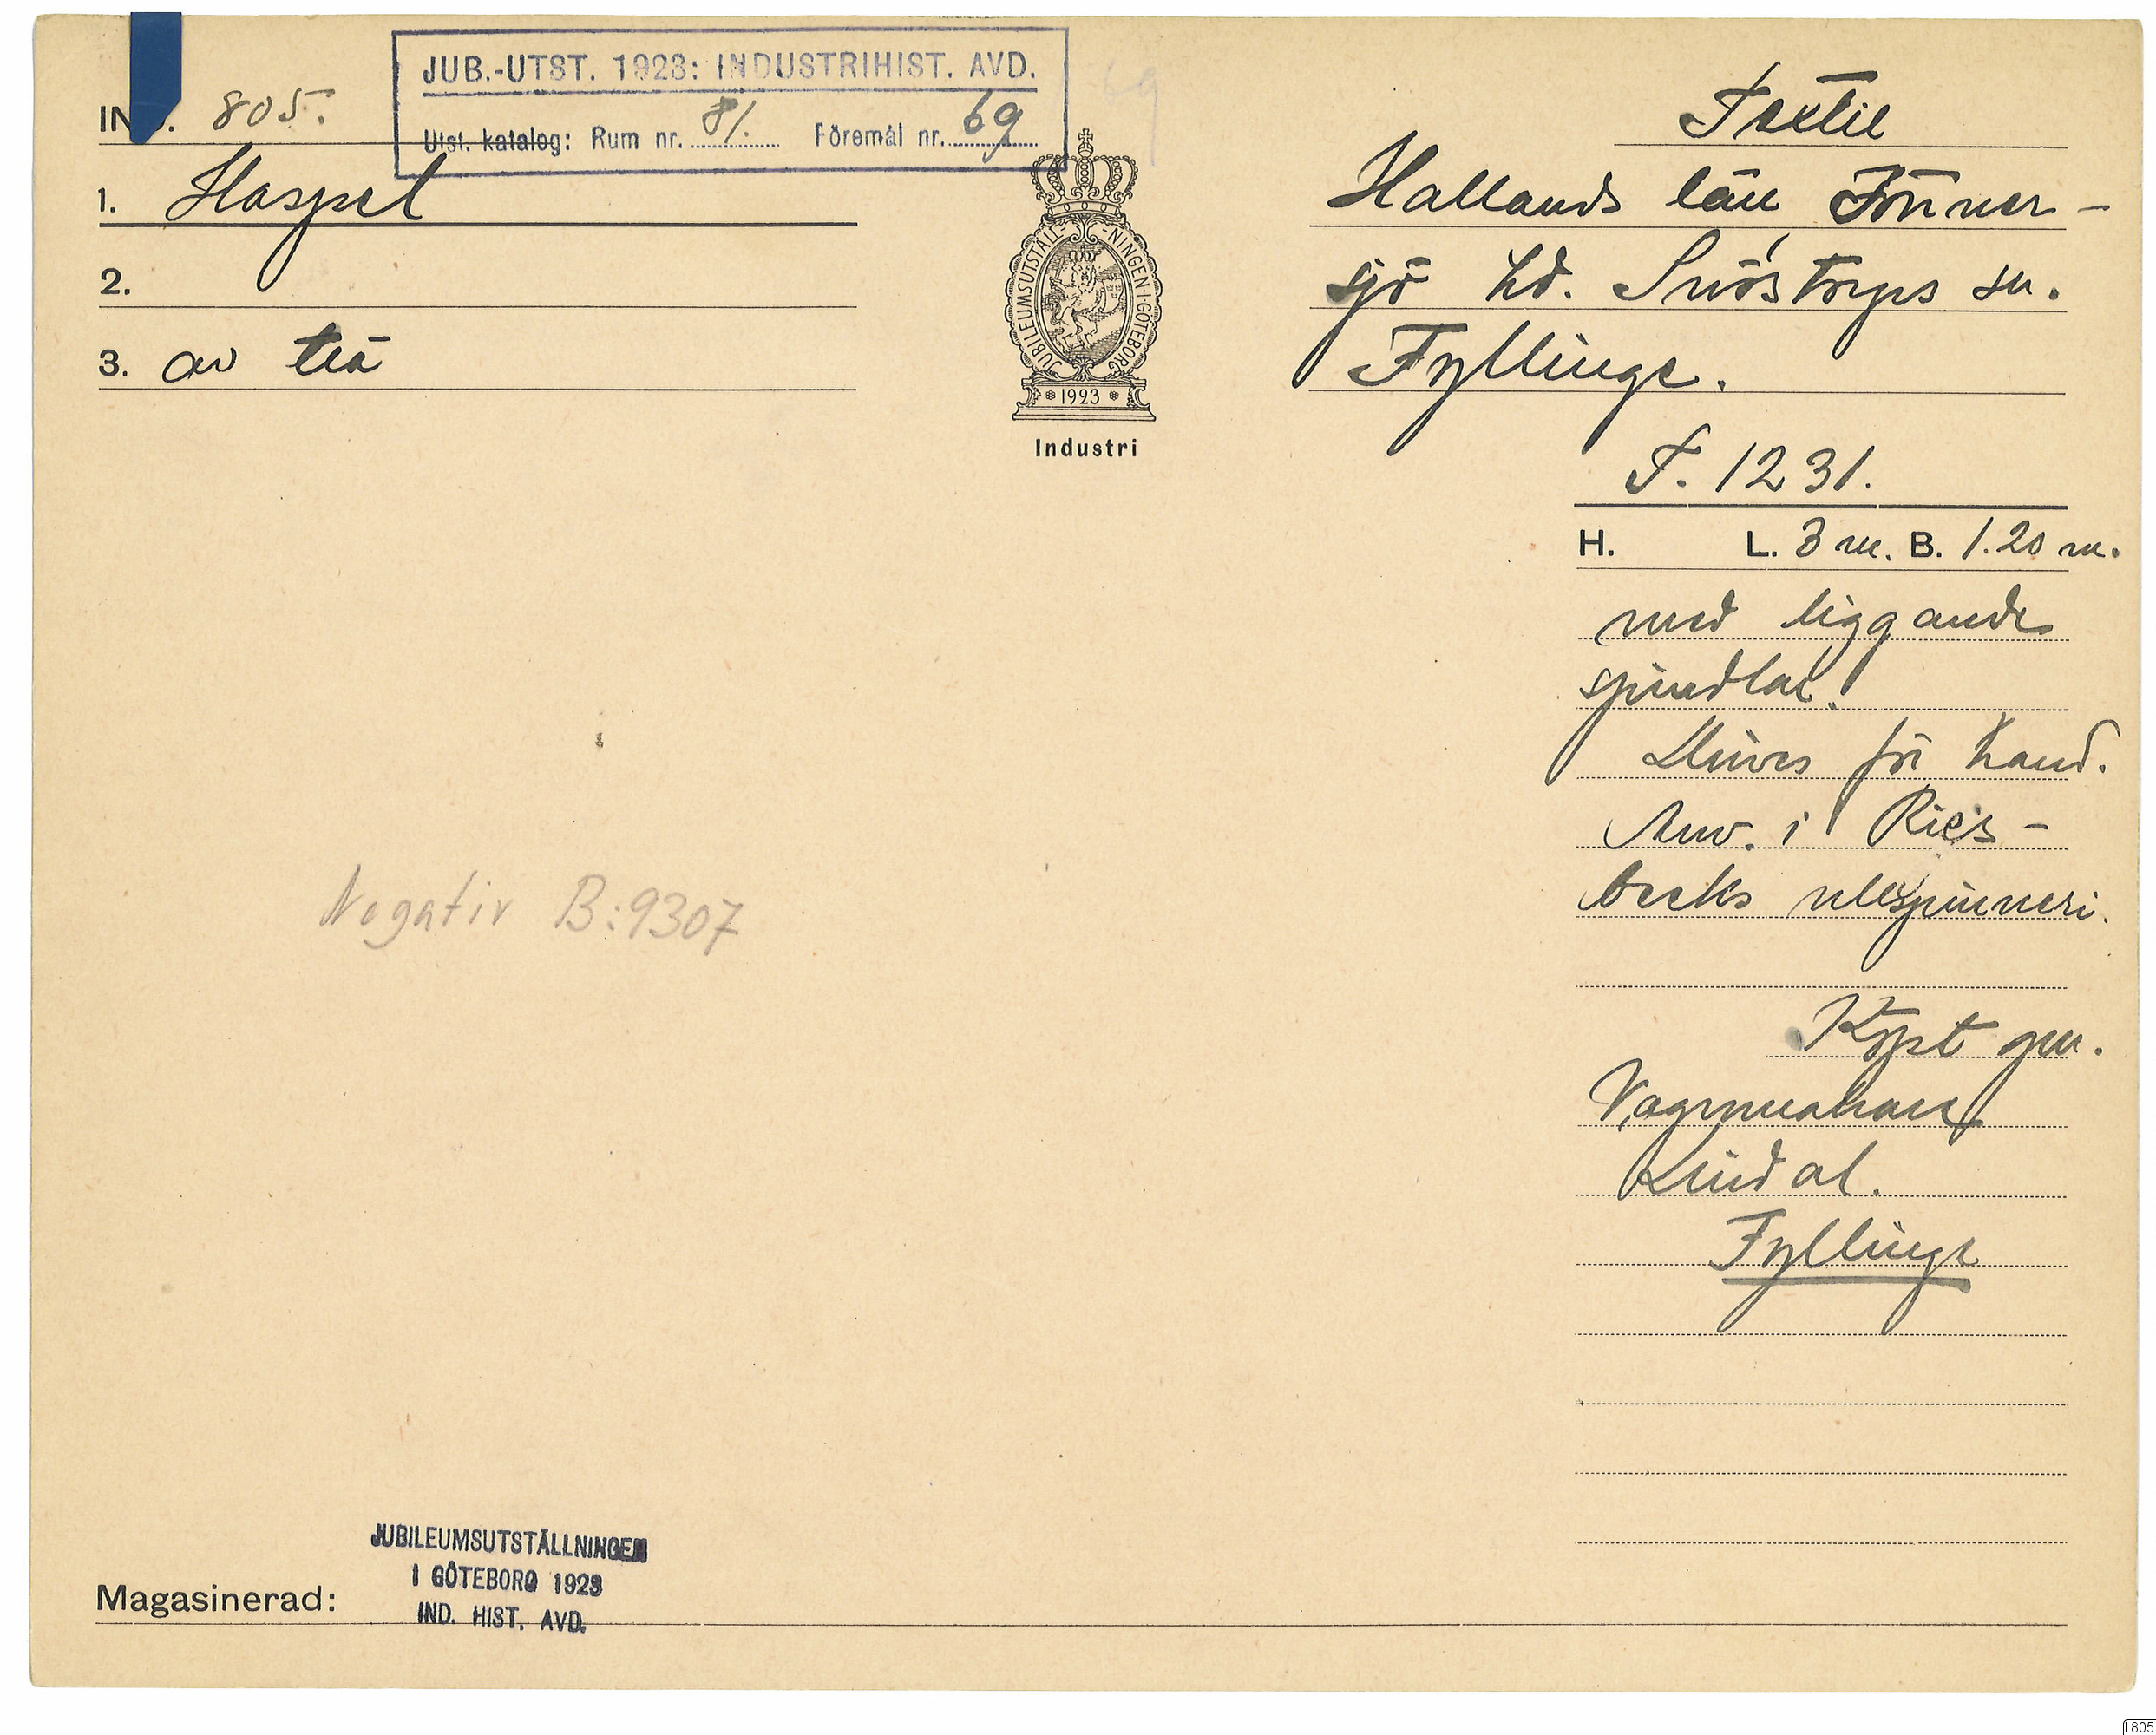 JUB.-UTST. 1923: INDUSTRIHIST. AVD.
Utst. katalog: Rum nr. 81. Föremål nr. 69
69
IN . 805.
1. Haspel
2.
3. av trä
JUBILEUMSUTSTÄLL-NINGEN·I·GÖTEBORG
1923
Industri
Textil
Hallands län Tönner-
sjö hd. Snöstorps sn.
Fyllinge.
T. 1231.
H. L. 3 m. B. 1.20 m.
med liggande
spindlar.
Drives för hand.
Anv. i Ries-
becks ullspinneri.
Negativ B:9307
Köpt gm.
Vagnmakare
Lindal.
Fyllinge
JUBILEUMSUTSTÄLLNINGEN
I GÖTEBORG 1923
IND. HIST. AVD.
Magasinerad:
I:805